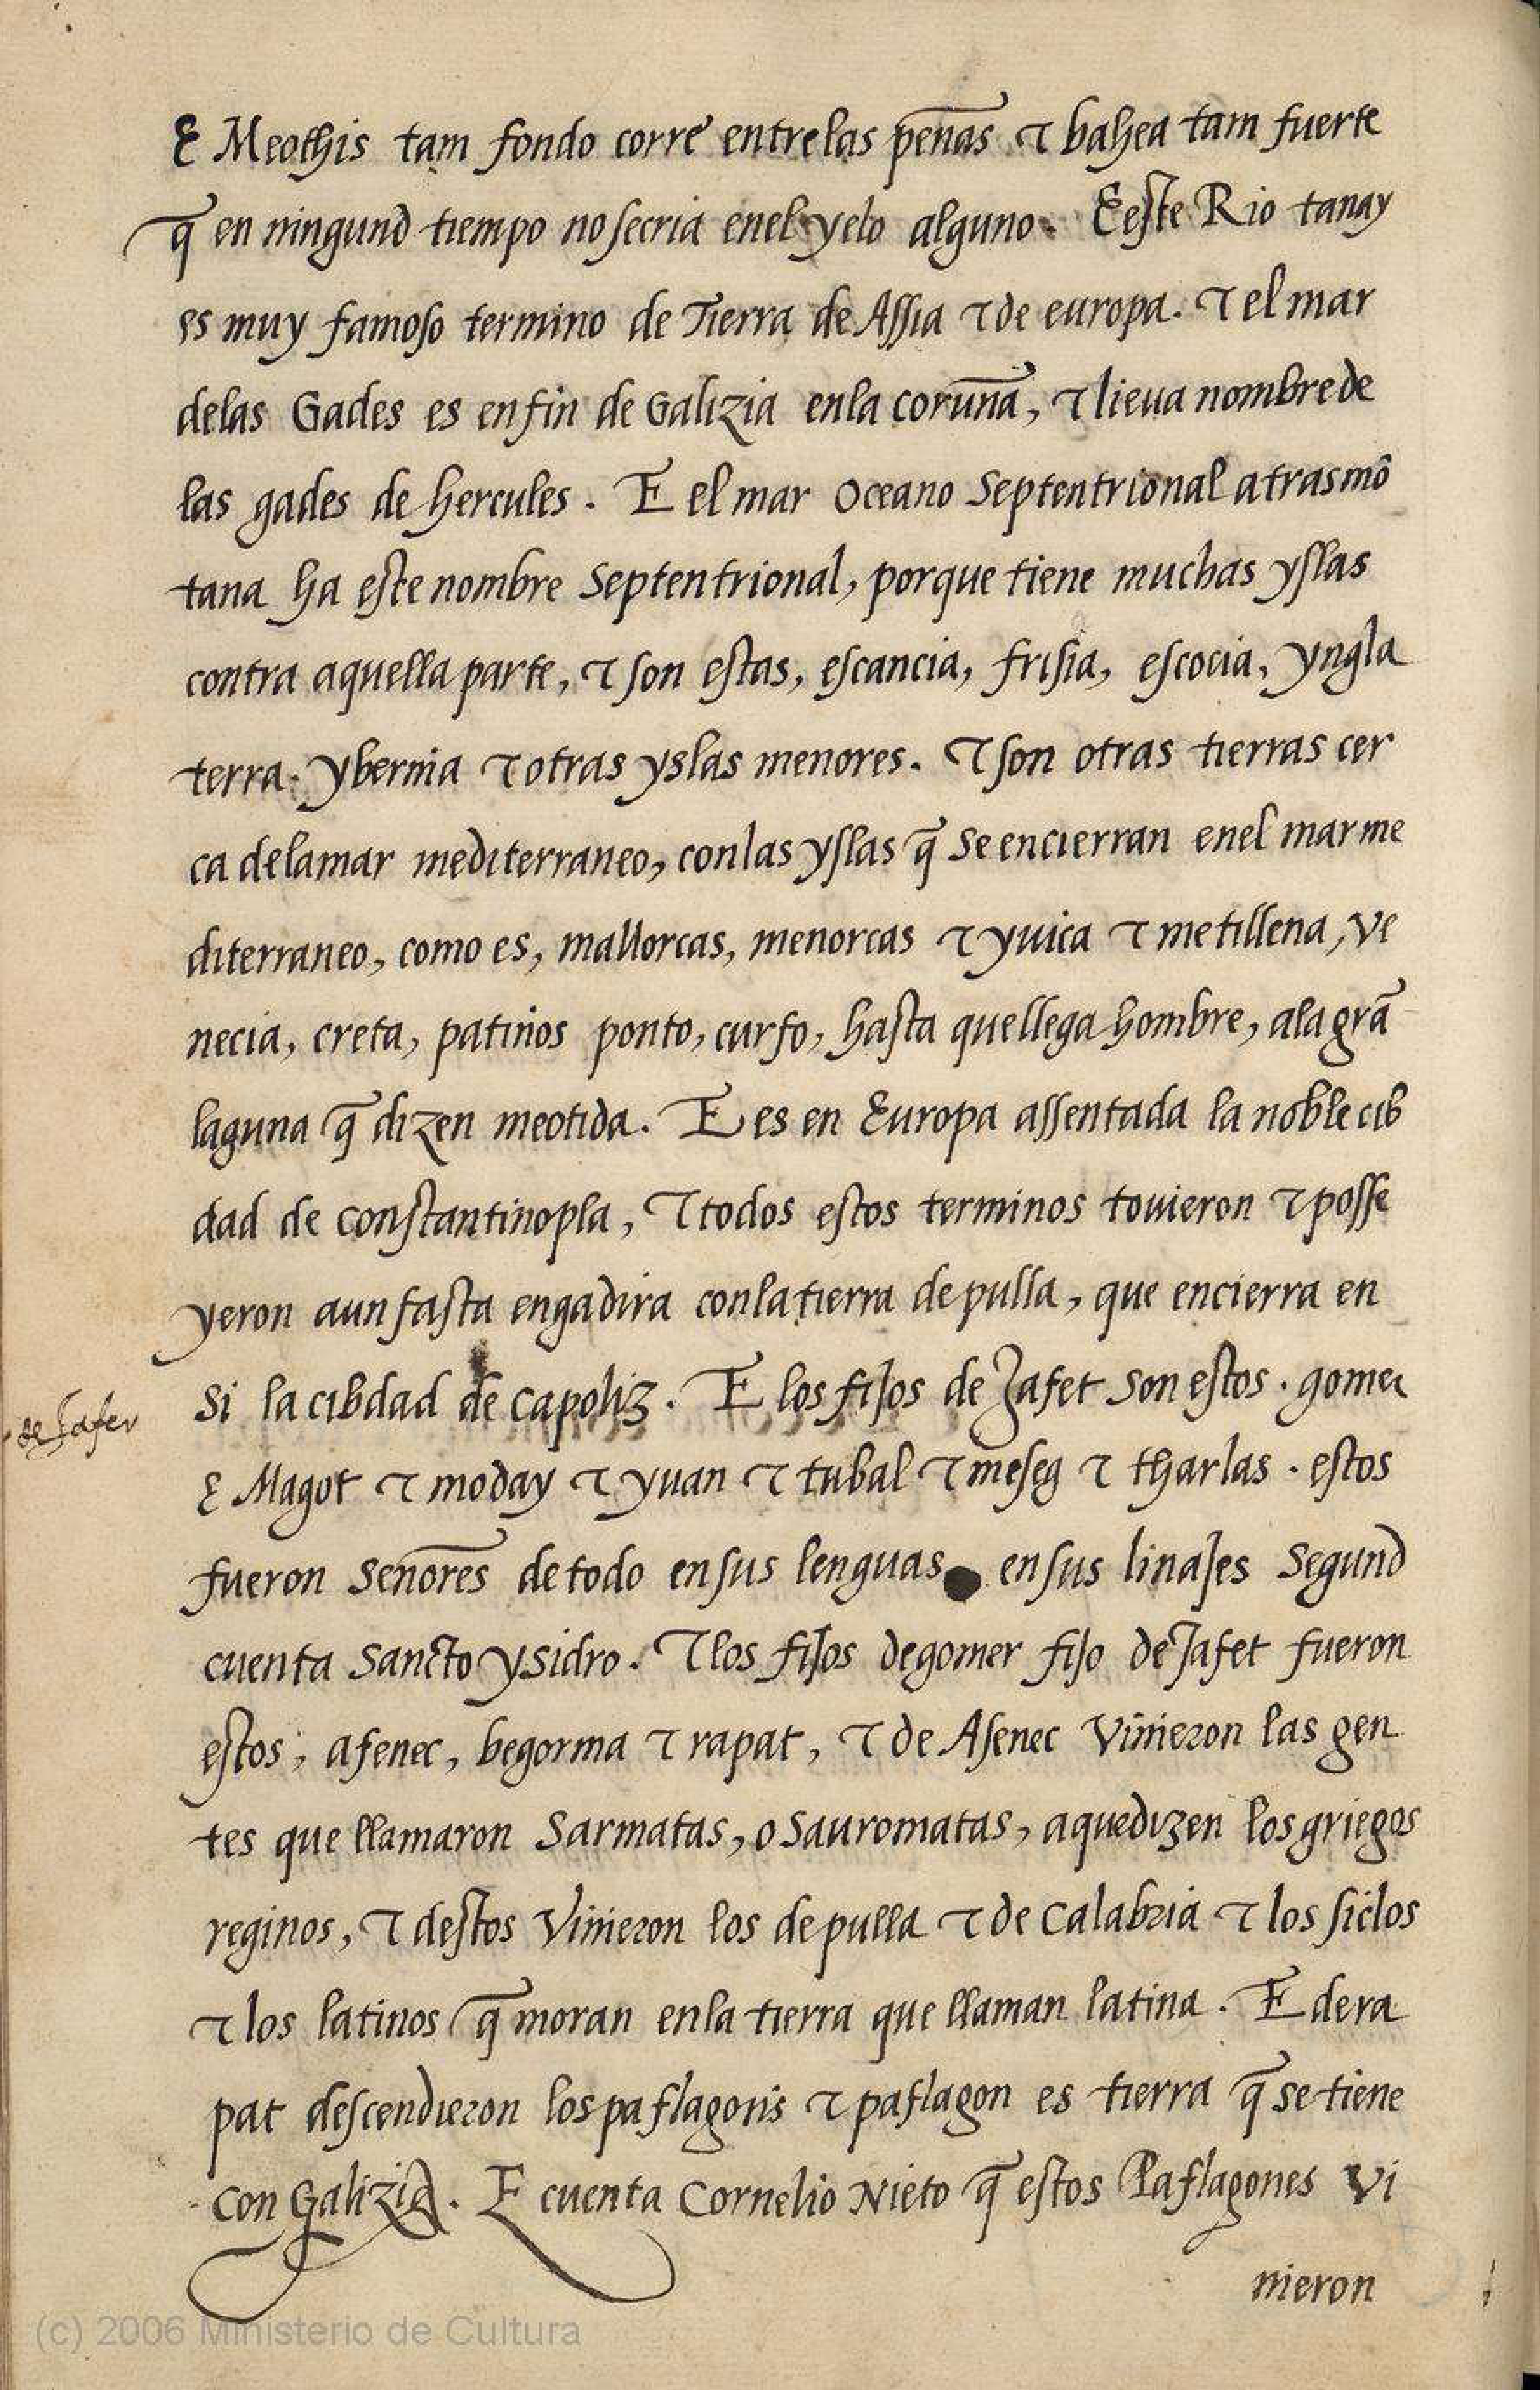 E Meothis tam fondo corre entrelas penãs τ bahea tam fuerte
q̃ en ningund tiempo no secria enel yelo alguno. E este Rio tanay
es muy famoso termino de Tierra de Assia τ de europa. τ el mar
delas Gades es en fin de Galizia enla corunã, τ lieua nombre de
las gades de hercules. E el mar Oceano Septentrional atrasmõ
tana ha este nombre Septentrional, porque tiene muchas yslas
contra aquella parte, τ son estas, escancia, frisia, escocia, yngla
terra. ybernia τ otras yslas menores. τ son otras tierras cer
ca delamar mediterraneo, conlas yslas q̃ se encierran enel mar me
diterraneo, como es, mallorcas, menorcas τ yuica τ metillena, ve
necia, creta, patinos ponto, curfo, hasta quellega hombre, ala grã
laguna q̃ dizen meotida. E es en Europa assentada la noble cib
dad de constantinopla, τ todos estos terminos touieron τ posse
yeron aun fasta engadira conla tierra de pulla, que encierra en
si la cibdad de capoliz. E los fijos de Jafet son estos. gomer
E Magot τ moday τ yuan τ tubal τ meseg τ tharlas. estos
fueron senõres de todo en sus lenguas en sus linajes segund
cuenta sancto ysidro. τ los fijos de gomer fijo de Jafet fueron
estos, asenec, begorma τ rapat, τ de Asenec vinieron las gen
tes que llamaron Sarmatas, o Sauromatas, aque dizen los griegos
reginos, τ destos vinieron los de pulla τ de calabria τ los siclos
τ los latinos q̃ moran enla tierra que llaman latina. E de ra
pat descendieron los paflagonis τ paflagon es tierra q̃ se tiene
con Galizia. E cuenta Cornelio Nieto q̃ estos Paflagones vi
nieron
de Jafer
(c) 2006 Ministerio de Cultura